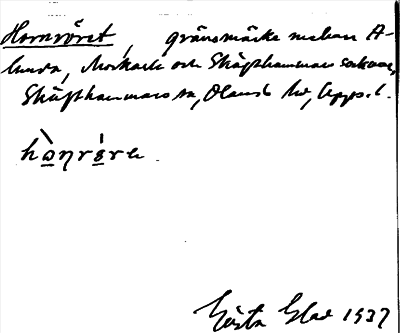 Hornröret, gränsmärke mellan A-
lunda, Morkarla och Skäfthammars socknar,
Skäfthammars sn, Olands hd, Upps. l.
hò̱ŋrö́re
Gösta Glad 1937